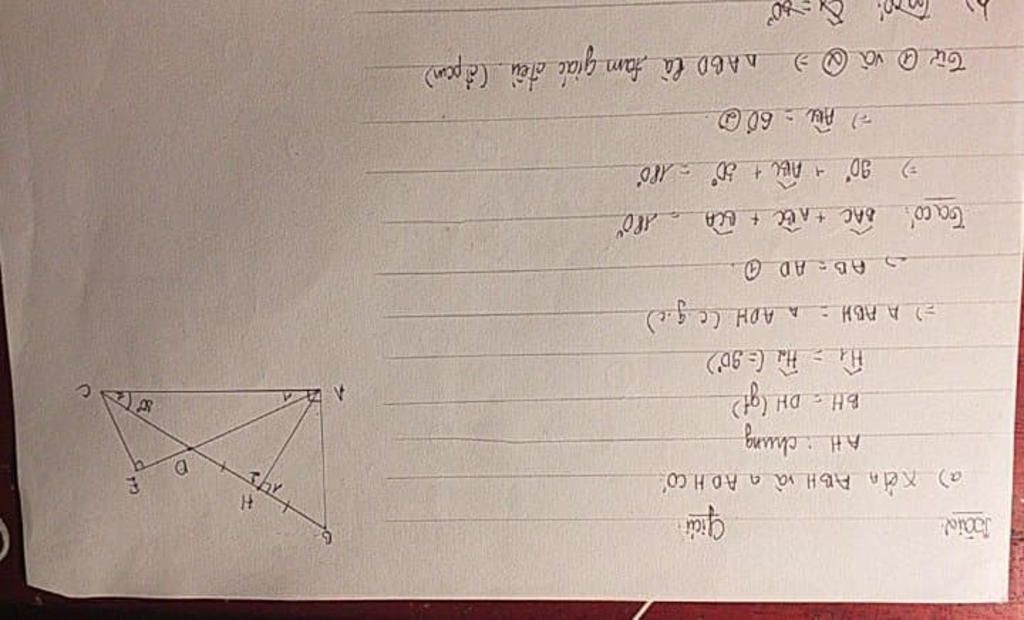 Bài
Giải:
a) Xét ∆ ABH và ∆ ADH có:
AH : chung
BH = DH (gt)
Ĥ1 = Ĥ2 (= 90°)
=> ∆ ABH = ∆ ADH (c.g.c)
=> AB = AD ①.
Ta có: BAC + ABC + BCA = 180°
=> 90° + ABC + 30° = 180°
=> ABC = 60 ②.
Từ ① và ② => ∆ ABD là tam giác đều. (đpcm)
b) Ta có:
B
H
1
2
D
E
A
1
C
30°
2